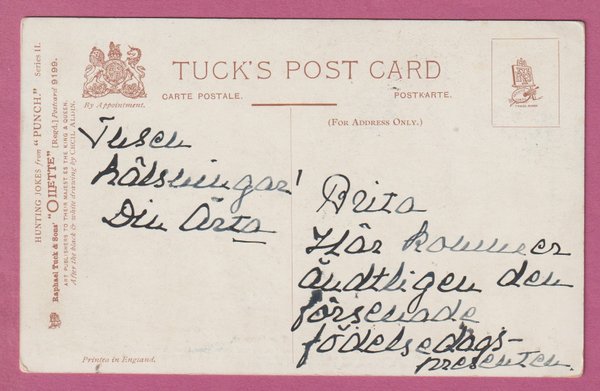 TUCK'S POST CARD
By Appointment.
CARTE POSTALE.
POSTKARTE.
(FOR ADDRESS ONLY.)
HUNTING JOKES from "PUNCH." Series II.
Raphael Tuck & Sons' "OILETTE" [Regd.] Postcard 9199.
ART PUBLISHERS TO THEIR MAJESTIES THE KING & QUEEN.
After the black & white drawing by CECIL ALDIN.
Tusen
hälsningar!
Din Ärta
Brita
Här kommer
ändtligen den
försenade
födelsedags-
presenten.
Printed in England.